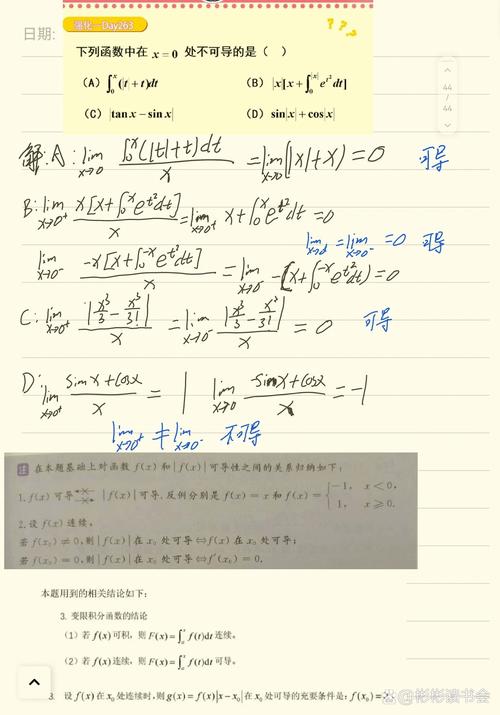 日期:
强化—Day263
? ? ?
下列函数中在 x = 0 处不可导的是（ ）
(A) ∫₀ˣ(|t| + t)dt (B) |x|[x + ∫₀^|x| e^{t²}dt]
(C) |tan x − sin x| (D) sin|x| + cos|x|
44
/
44
解: A: lim_{x→0} ∫₀ˣ(|t|+t)dt / x = lim_{x→0}(|x|+x) = 0 可导
B: lim_{x→0⁺} x[x+∫₀ˣe^{t²}dt] / x = lim_{x→0⁺} x+∫₀ˣe^{t²}dt = 0
lim_{x→0} = lim_{x→0⁻} = 0 可导
lim_{x→0⁻} -x[x+∫₀^{-x}e^{t²}dt] / x = lim_{x→0⁻} -(x+∫₀^{-x}e^{t²}dt) = 0
C: lim_{x→0⁺} |x³/3 - x³/3!| / x = lim_{x→0⁻} |x³/3 - x³/3!| / x = 0 可导
D: lim_{x→0⁺} sinx+cosx / x = 1 lim_{x→0} -sinx+cosx / x = -1
lim_{x→0⁺} ≠ lim_{x→0⁻} 不可导
注 在本题基础上对函数 f(x) 和 |f(x)| 可导性之间的关系归纳如下:
1. f(x) 可导 |f(x)| 可导, 反例分别是 f(x) = x 和 f(x) = { −1, x < 0,
1, x ≥ 0.
2. 设 f(x) 连续.
若 f(x₀) ≠ 0, 则 |f(x)| 在 x₀ 处可导 ⇔ f(x) 在 x₀ 处可导;
若 f(x₀) = 0, 则 |f(x)| 在 x₀ 处可导 ⇔ f′(x₀) = 0.
本题用到的相关结论如下:
3. 变限积分函数的结论
(1) 若 f(x) 可积, 则 F(x) = ∫ₐˣ f(t)dt 连续。
(2) 若 f(x) 连续, 则 F(x) = ∫ₐˣ f(t)dt 可导。
设 f(x) 在 x₀ 处连续时, 则 g(x) = f(x)|x − x₀| 在 x₀ 处可导的充要条件是: f(x₀) =
@彬彬读书会